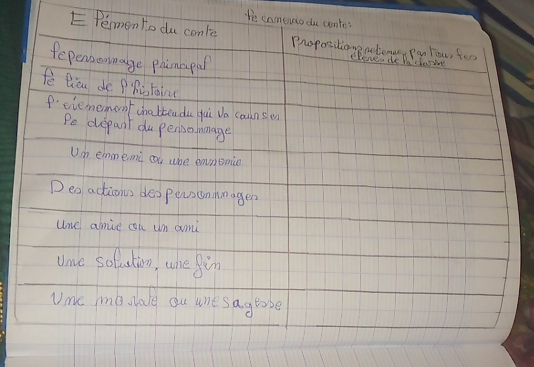 Le canevas du conte:
Elément du conte
Propositions retenues par tous les
élèves de la classe
Le personnage principal
Le lieu de l'histoire
l'évènement inattendu qui va causer
le départ du personnage
Un ennemi ou une ennemie
Des actions des personnages
Une amie ou un ami
Une solution, une fin
Une morale ou une sagesse